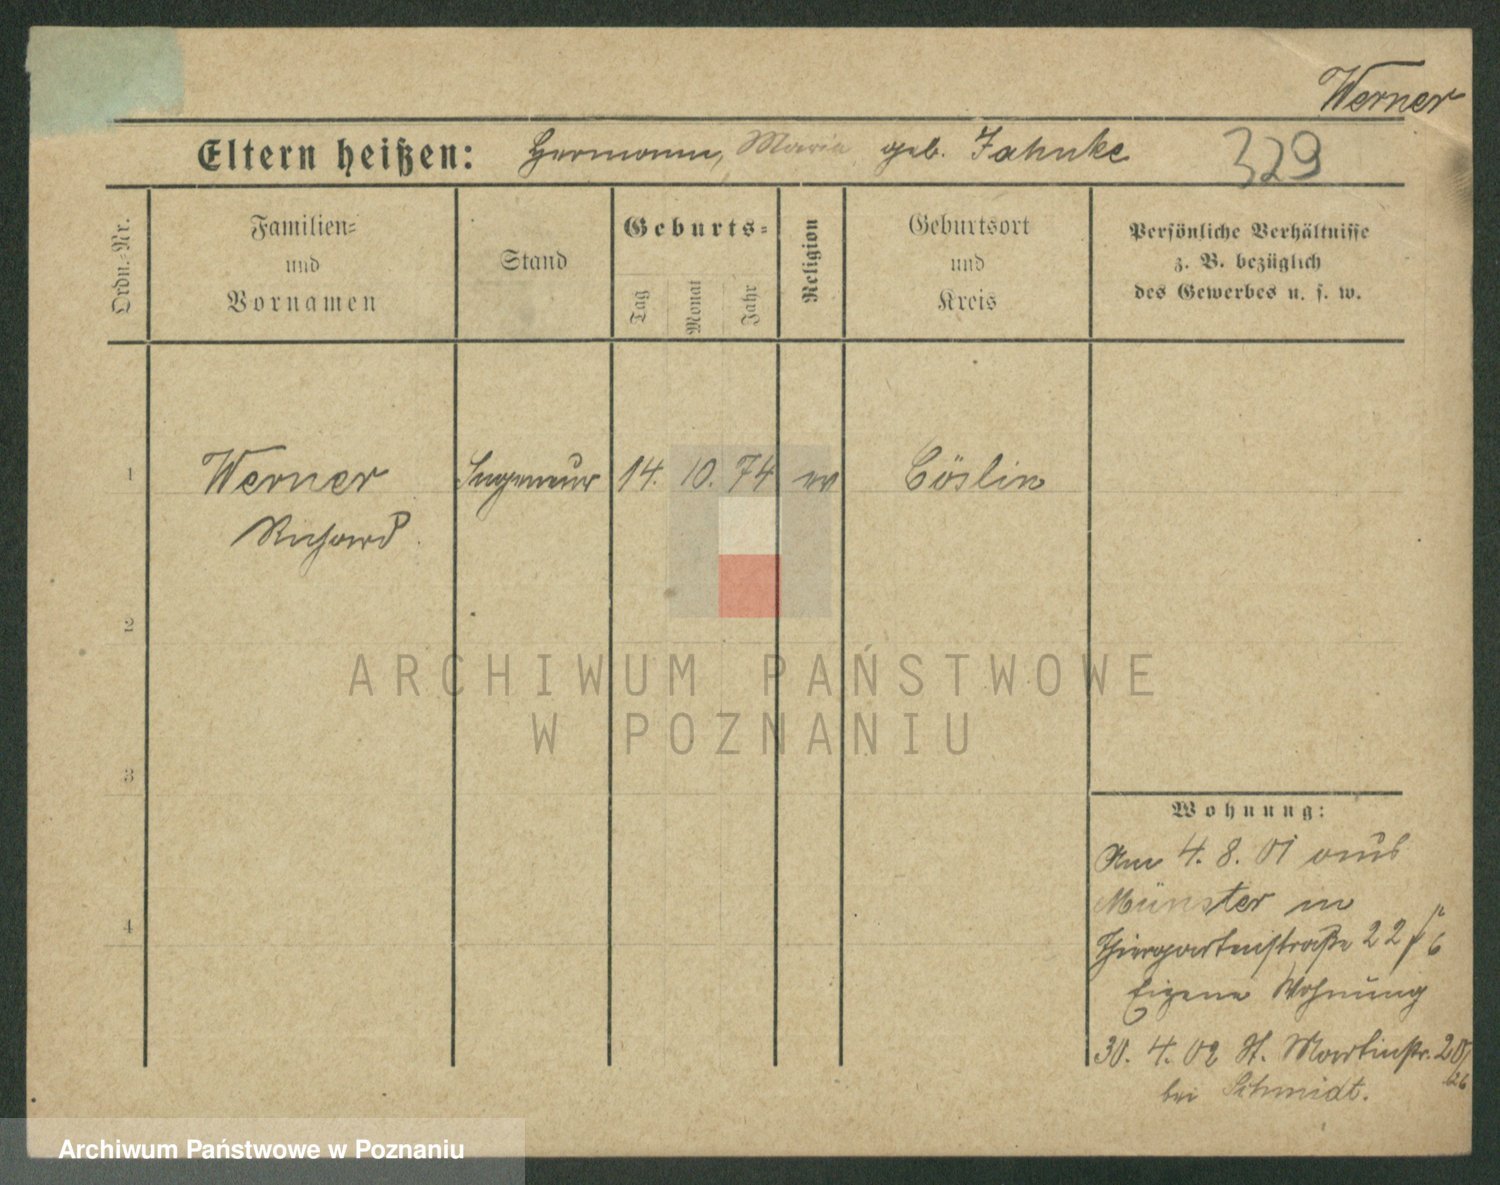 Werner
Eltern heißen: Hermann, Maria geb. Jahnke 329
Ordn.-Nr.
Familien-
und
Vornamen
Stand
Geburts-
Tag
Monat
Jahr
Religion
Geburtsort
und
Kreis
Persönliche Verhältnisse
z. B. bezüglich
des Gewerbes u. s. w.
1 Werner Ingenieur 14. 10. 74 ev Cöslin
Richard
2
3
4
Wohnung:
Am 4. 8. 01 aus
Münster in
Thiergartenstraße 22
Eigene Wohnung
30. 4. 02 St. Martinstr.
bei Schmidt.
ARCHIWUM PAŃSTWOWE
W POZNANIU
Archiwum Państwowe w Poznaniu